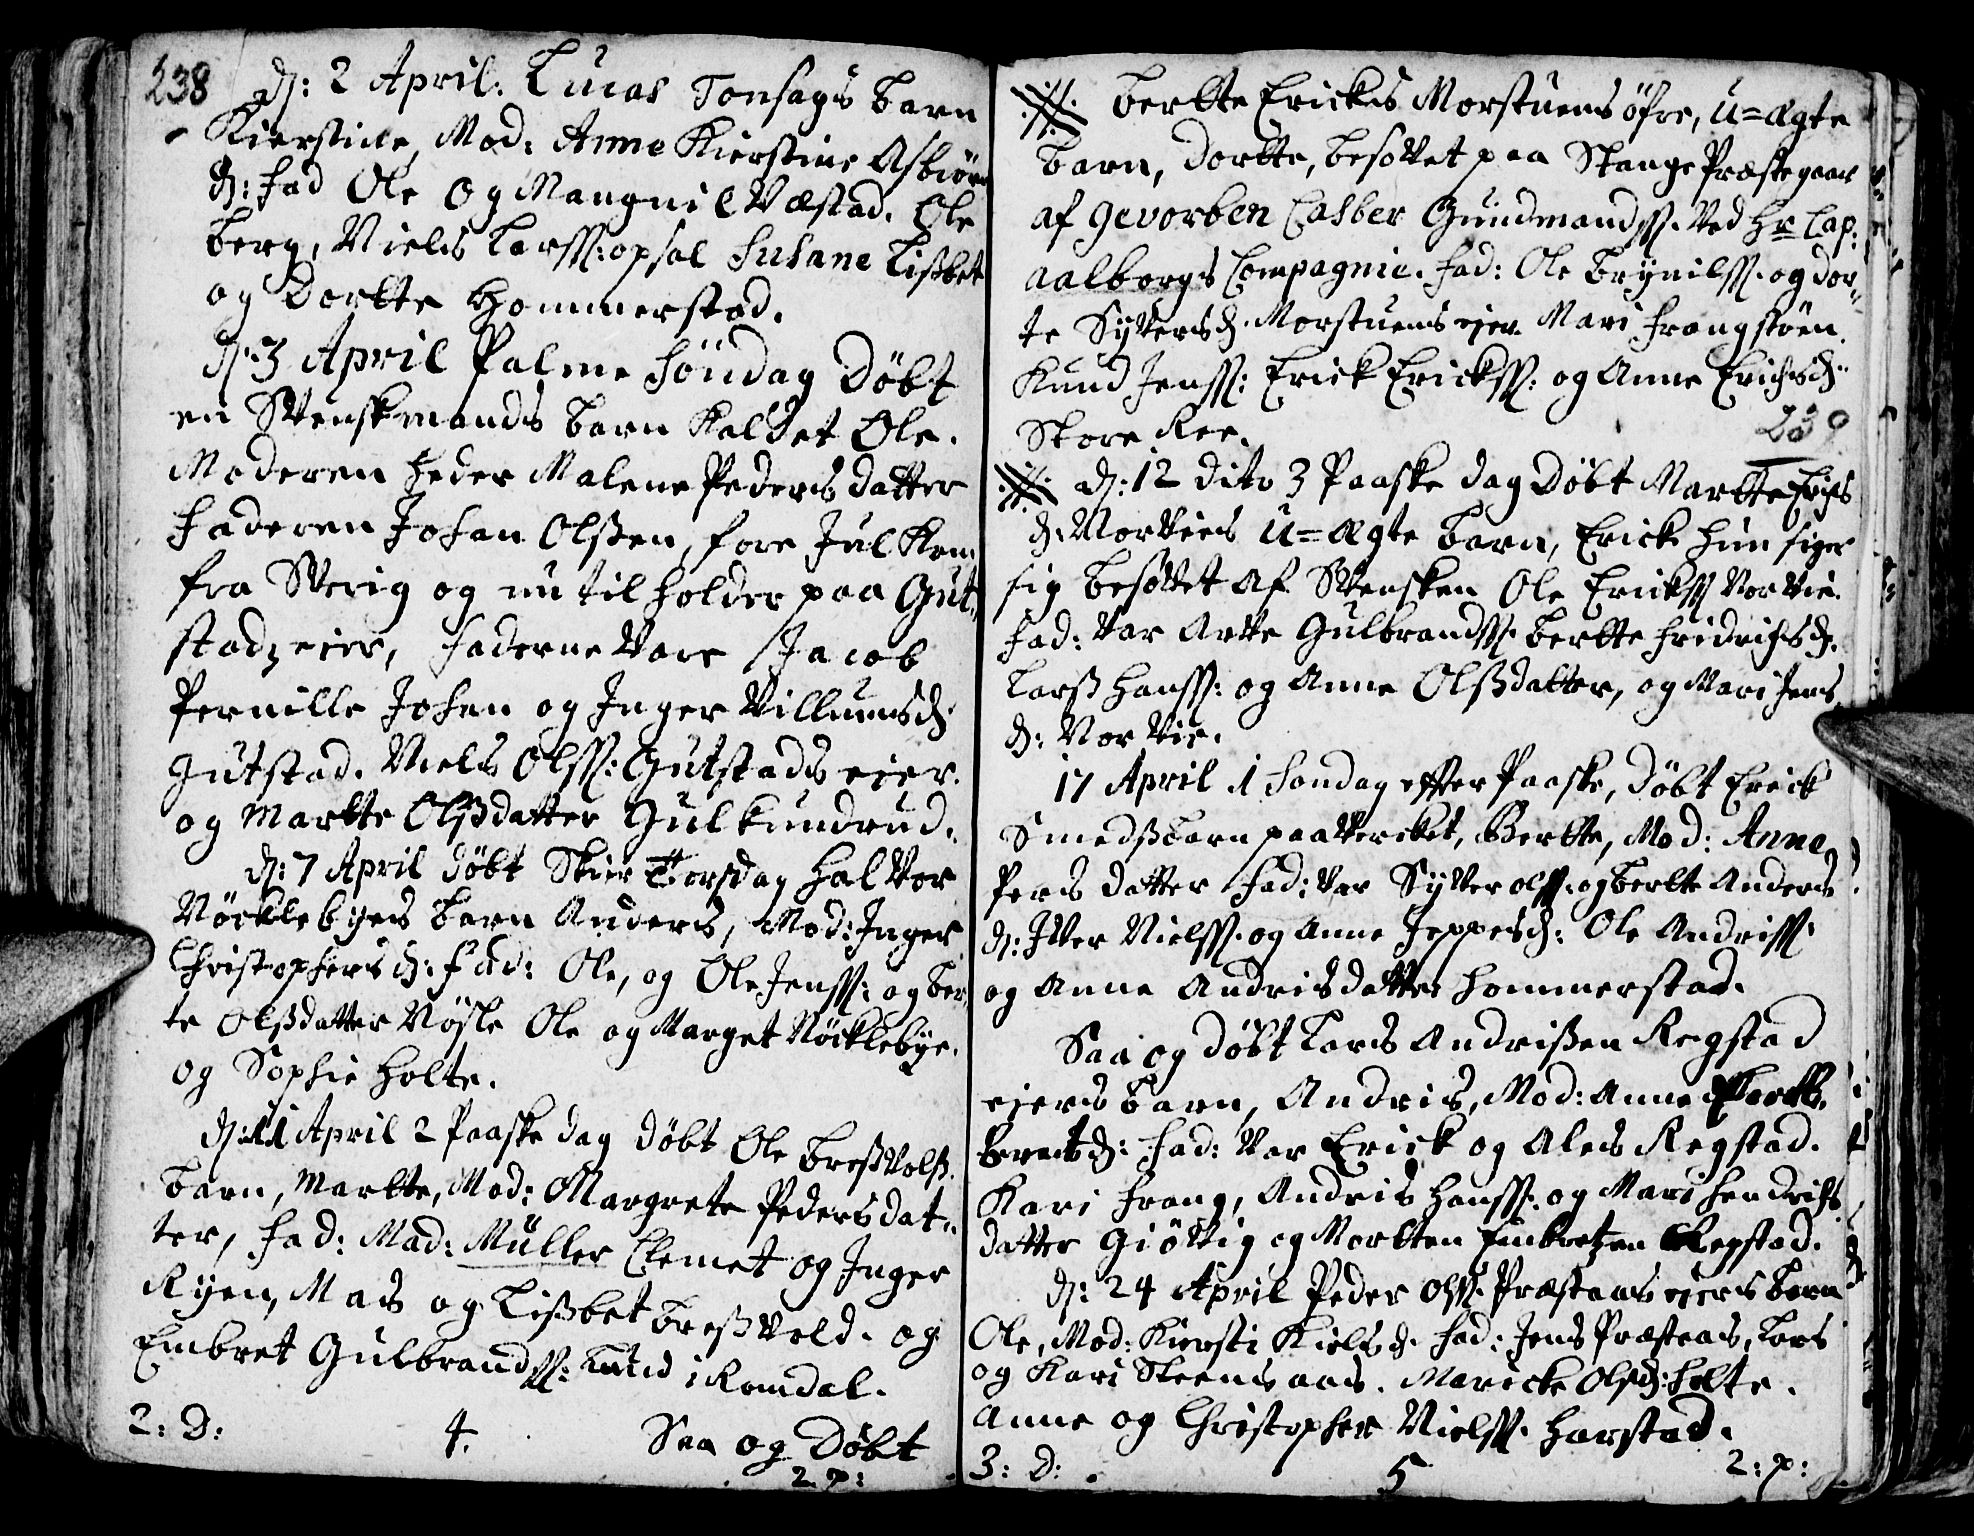 238
d: 2 April. Lucas Tonsags barn
Kierstine, Mod: Anne Kierstine Asbiörns
d: fad Ole og Mangnil Væstad. Ole
berg, Niels Larss: opsal Susane Lisbet
og Dortte Hommerstad.
d: 3 April Palme Söndag Döbt
en Svenskmands barn Kaldet Ole.
Moderen heder Malene Peders datter
Faderen Johan Olßen, fore Jul Kom
fra Sverig og nu tilholder paa Gut,,
stadz eier, Faderne Vare Jacob
Pernille Johan og Inger Villumsd:
Gutstad. Niels Olss: Gutstads eier.
og Martte Olßdatter Gulkundrud.
d: 7 April döbt Skier Torsdag Halvor
Nöcklebyes barn Anders, Mod: Inger
Christophersd: fad: Ole, og Ole Jenss: og Ber,
te Olßdatter Nösle Ole og Marget Nöcklebye.
og Sophie Holte.
d: 11 April 2 Paaske dag döbt Ole Breßvolß
barn, Martte, Mod: Margrete Pedersdat,,
ter, fad: Mad: Müller Clemet og Inger
Ryen, Mads og Lißbet Breßvold. og
Embret Gulbrandss: i Romdal.
2: D: 4. Saa og Döbt
2. p:
Bertte Ericks Morstuens öfre, u=ægte
barn, Dortte, besovet paa Stange Præstegaar
af gevorben Casber Gundmandss. Ved Hr Cap:
Aalborgs Compagnie. fad: Ole Brynilss. og Dor,,
te Syversd. Morstuens eier Mari Frangstöen.
Knud Jenss: Erick Erickss: og Anne Erichsd:
Store Ree.
239
d: 12 dito 3 Paaske dag Döbt Martte Erichs
d. Norviens u=ægte barn, Erick hun siger
sig besovet af Svensken Ole Erickss Norvie.
fad: Var Arve Gulbrandss. Bertte Fridrichsd.
Larß Hanss: og Anne Olßdatter, og Mari Jens
d: Norvie.
17 April 1 Söndag efter Paaske, döbt Erick
Smedß barn paa Vercket, Bertte, Mod: Anne
Pers datter fad: Var Syver olss. og Bertte Anders
d: Iver Nielss. og Anne Jeppesd: Ole Andriss.
og Anne Andrisdatter Hommerstad.
Saa og döbt Lars Andrißen Regstad
eiers barn, Andris, Mod: Anne
bretsd: fad: Var Erick og Ales Regstad.
Kari Frang, Andris Hanss: og Mari Hendrichs
datter Giövig og Mortten Embretzen Regstad.
d: 24 April Peder Olss. Præstaas eiers barn
Ole, Mod: Kiersti Kielsd. fad: Jens Præstaas, Lars
og Kari Steensaas. Maricke Olsd: Holte.
Anne og Christopher Nielss. Harstad.
3: D: 5 2: p: